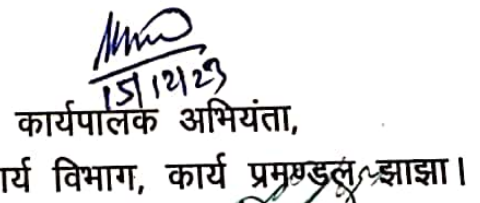 15/12/23
कार्यपालक अभियंता,
र्य विभाग, कार्य प्रमण्डल, झाझा।